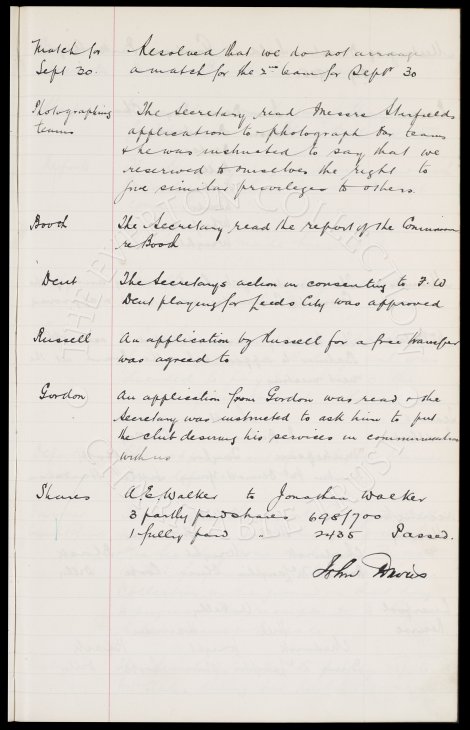 Match for Resolved that we do not arrange
Sept 30. a match for the 2nd team for Sept 30
Photographing The Secretary read Messrs
teams application to photograph our teams
& he was instructed to say that we
reserved to ourselves the right to
give similar privileges to others.
Booth The Secretary read the report of the Commission
re Booth
Dent The Secretarys action in consenting to F. W
Dent playing for Leeds City was approved
Russell An application by Russell for a free transfer
was agreed to
Gordon An application from Gordon was read & the
Secretary was instructed to ask him to put
the club desiring his services in communication
with us
Shares A. E. Walker to Jonathan Walker
3 partly paid shares 698/700
1 fully paid " 2435 Passed.
John Davies
THE EVERTON COLLECTION
CHARITABLE TRUST